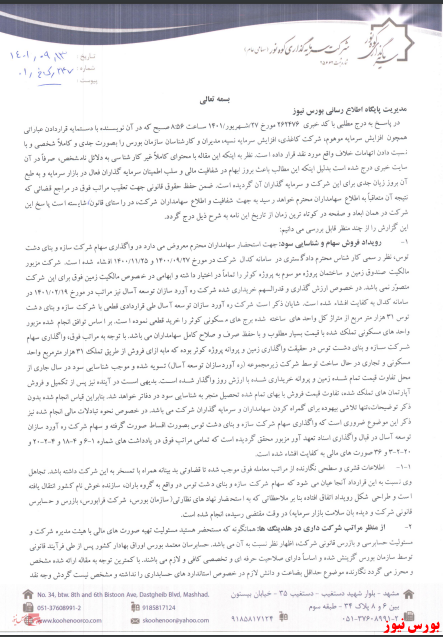 شرکت سرمایه گذاری کوه نور (سهامی عام)
تاریخ :
شماره :
پیوست :
بسمه تعالی
مدیریت پایگاه اطلاع رسانی بورس نیوز
در پاسخ به درج مطلبی با کد خبری ۲۶۲۴۷۶ مورخ ۲۷/شهریور/۱۴۰۱ ساعت ۸:۵۶ صبح که در آن نویسنده با دستمایه قراردادن عباراتی
همچون افزایش سرمایه موهوم، شرکت کاغذی، افزایش سرمایه نسیه، مدیران و کارشناسان سازمان بورس را بصورت جدی و کاملاً شخصی و با
نسبت دادن اتهامات خلاف واقع مورد نقد قرار داده است. نظر به اینکه این مقاله با محتوای کاملاً غیر کارشناسی به دلائل نامشخص، صرفاً در آن
سایت خبری درج شده است بدلیل اینکه این مطالب باعث بروز ابهام در شفافیت مالی و سلب اطمینان سرمایه گذاران فعال در بازار سرمایه و به طبع
آن بروز زیان جدی برای این شرکت و سرمایه گذاران آن گردیده است. ضمن حفظ حقوق قانونی جهت تعقیب مراتب فوق در مراجع قضائی که
نتیجه آن متعاقباً به اطلاع سهامداران محترم خواهد رسید به جهت شفافیت و اطلاع سهامداران شرکت، در راستای قانون/شایسته است پاسخ این
شرکت در همان ابعاد و صفحه در کوتاه ترین زمان از تاریخ این نامه به شرح ذیل درج گردد.
این گزارش را از چند منظر قابل بررسی می دانیم:
۱- رویداد فروش سهام و شناسایی سود: جهت استحضار سهامداران محترم معروض می دارد در واگذاری سهام شرکت سازه و بنای دشت
توس، نظر رسمی کارشناس محترم دادگستری در سامانه کدال شرکت در مورخ ۱۴۰۰/۰۹/۲۷ و ۱۴۰۰/۱۱/۲۵ افشاء شده است. شرکت مزبور
مالکیت صندوق زمین و ساختمان پروژه مو سوم به پروژه کوثر را تماماً در اختیار داشته و ابهامی در خصوص مالکیت زمین فوق برای این شرکت
متصوّر نمی باشد. در خصوص ارزش گذاری و قدرالسهم خریداری شده شرکت ره آورد سازان توسعه آسال نیز مراتب در مورخ ۱۴۰۱/۰۲/۱۹ در
سامانه کدال به کفایت افشاء شده است. شایان ذکر است شرکت ره آورد سازان توسعه آسال طی قراردادی قطعی با شرکت سازه و بنای دشت
توس ۳۱ هزار متر مربع از متراژ کل واحد های ساخته شده برج های مسکونی کوثر را خرید قطعی نموده است. بر اساس توافق انجام شده مزبور
واحد های مسکونی تملک شده با قیمت بسیار مطلوب و با حفظ صرف و صلاح کامل سهامداران می باشد. با توجه به مراتب فوق، واگذاری سهام
شرکت سازه و بنای دشت توس در حقیقت واگذاری زمین و پروانه پروژه کوثر بوده که مابه ازای فروش از طریق تملک ۳۱ هزار مترمربع واحد
مسکونی و تجاری در حال ساخت توسط شرکت زیرمجموعه (ره آوردسازان توسعه آسال) تسویه شده و موجب شناسایی سود در سال جاری از
محل تفاوت قیمت تمام شده زمین و پروانه خریداری شده با ارزش روز واگذار شده است. بدیهی است در آینده نیز پس از تکمیل و فروش
آپارتمان های تملک شده، تفاوت قیمت فروش با بهای تمام شده تحصیل منجر به شناسایی سود در دفاتر خواهد شد. بنابراین قیاس انجام شده بدون
ذکر توضیحات، تنها تلاشی بیهوده برای گمراه کردن سهامداران و سرمایه گذاران شرکت می باشد. در خصوص نحوه تبادلات مالی انجام شده نیز
ذکر این موضوع ضروری است که واگذاری سهام شرکت سازه و بنای دشت توس بصورت اقساط صورت گرفته و سهام شرکت ره آورد سازان
توسعه آسال در قبال واگذاری اسناد تعهد آور مزبور محقق گردیده است که تمامی مراتب فوق در یادداشت های شماره
صورت های مالی به کفایت افشاء شده است.
۱-۱- اطلاعات قشری و سطحی نگارنده از مراتب معامله فوق موجب شده تا قضاوتی بد بینانه همراه با تمسخر به این شرکت داشته باشد. تجاهل
وی نسبت به این قرارداد آنجا عیان می شود که سهام شرکت سازه و بنای دشت توس در واقع به گروه یاران، سازنده خوش نام کشور انتقال یافته
است و طراحی شکل رویداد اتفاق افتاده بنا بر ملاحظاتی که به استحضار نهاد های نظارتی (سازمان بورس، شرکت فرابورس، بازرس و حسابرس
قانونی شرکت و دیده بان سلامت بازار سرمایه) در وقت مقتضی رسیده، انجام شده است.
۲- از منظر مراتب شرکت داری در هلدینگ ها: همانگونه که مستحضر هستید مسئولیت تهیه صورت های مالی با هیئت مدیره شرکت و
مسئولیت حسابرسی و بازرسی قانونی شرکت، اظهار نظر نسبت به آن می باشد. حسابرسان معتمد بورس اوراق بهادار کشور پس از طی فرآیند قانونی
توسط سازمان بورس گزینش شده و اساساً دارای صلاحیت حرفه ای و تخصصی کافی و لازم می باشند. با کمترین توجه به مقاله ارائه شده مشخص
و محرز می گردد نگارنده موضوع حداقل بضاعت و دانش لازم در خصوص استاندارد های حسابداری را نداشته و مشخص نیست گردش وجه نقد
مشهد - بلوار شهید دستغیب - دستغیب ۳۵ - خیابان بیستون
بین ۶ و ۸ پلاک ۳۴ - طبقه سوم
۰۵۱-۳۷۶۰۸۹۹۱-۲
۹۱۸۵۸۱۷۱۲۴
No. 34, btw. 8th and 6th Bistoon Ave, Dastgheib Blvd, Mashhad.
051-37608991-2
9185817124
www.skoohenoorco.com
skoohenoor@yahoo.com
بورس نیوز